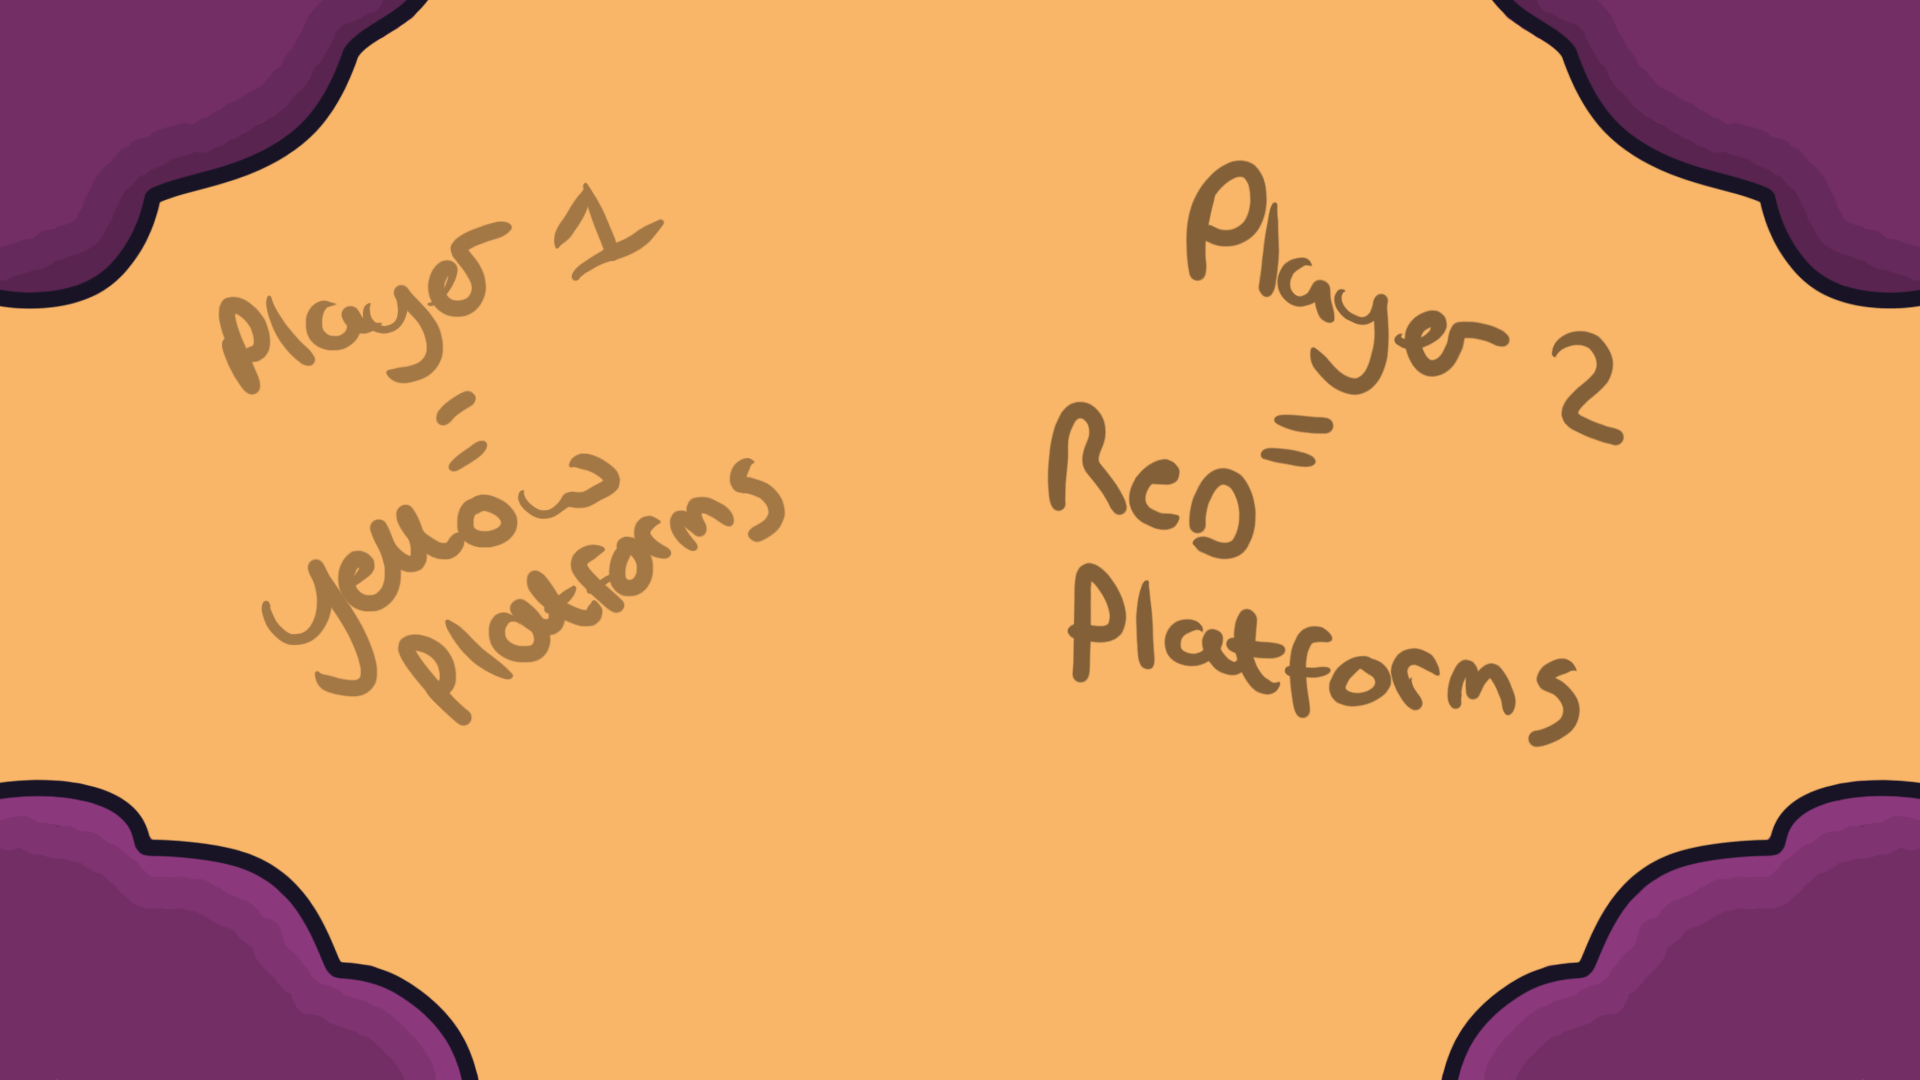 Player 1
=
Yellow
Platforms
Player 2
=
Red
Platforms